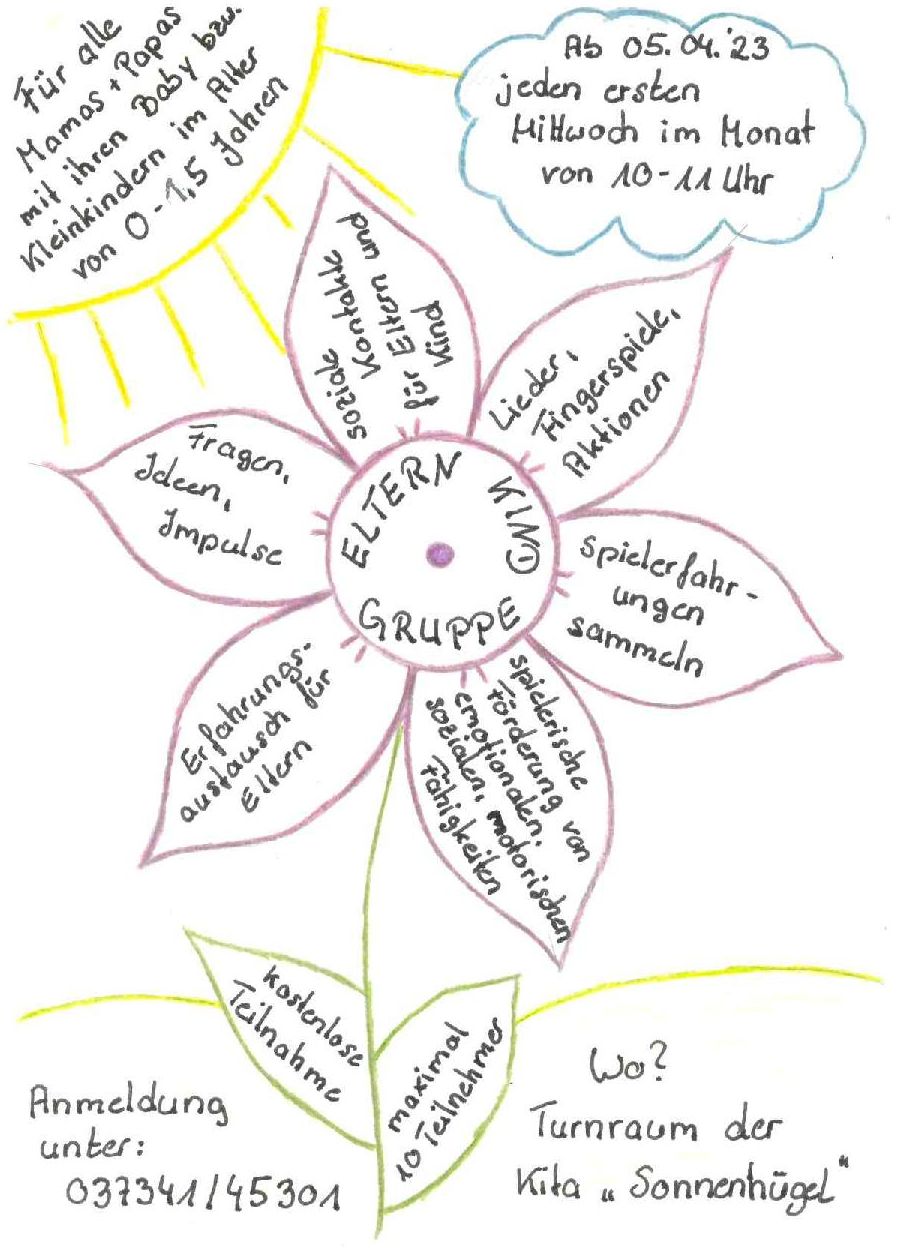 Für alle
Mamas + Papas
mit ihren Baby bzw.
Kleinkindern im Alter
von 0-1,5 Jahren
Ab 05.04.'23
jeden ersten
Mittwoch im Monat
von 10-11 Uhr
soziale
Kontakte
für Eltern und
Kind
Lieder,
Fingerspiele,
Aktionen
Fragen,
Ideen,
Impulse
ELTERN
KIND
GRUPPE
Spielerfahr-
ungen
sammeln
Erfahrungs-
austausch für
Eltern
spielerische
Förderung von
emotionalen,
sozialen, motorischen
Fähigkeiten
kostenlose
Teilnahme
maximal
10 Teilnehmer
Anmeldung
unter:
037341/45301
Wo?
Turnraum der
Kita „Sonnenhügel"